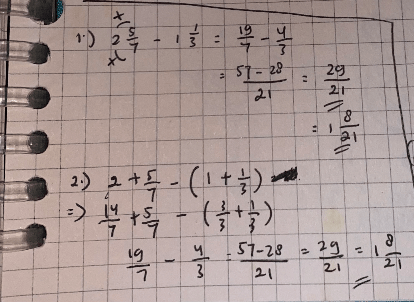 x
1.) 2 5/7 - 1 1/3 = 19/7 - 4/3
x
= 57-28/21 = 29/21
= 1 8/21
2.) 2 + 5/7 - (1 + 1/3)
=) 14/7 + 5/7 - (3/3 + 1/3)
19/7 - 4/3 = 57-28/21 = 29/21 = 1 8/21